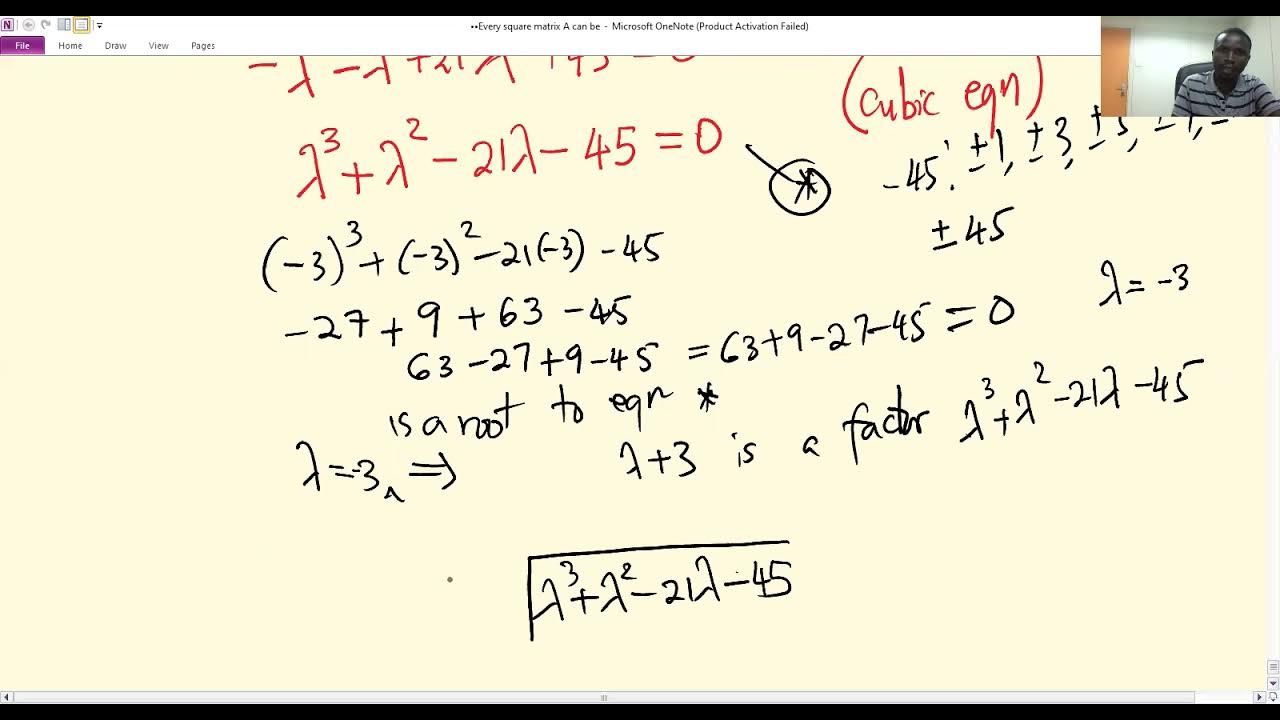 ••Every square matrix A can be - Microsoft OneNote (Product Activation Failed)
File Home Draw View Pages
(cubic eqn)
λ³ + λ² - 21λ - 45 = 0
*
-45: ±1, ±3,
± 45
(-3)³ + (-3)² - 21(-3) - 45
λ = -3
-27 + 9 + 63 - 45
63 - 27 + 9 - 45 = 63 + 9 - 27 - 45 = 0
is a root to eqn *
λ = -3 ∧ ⇒ λ + 3 is a factor λ³ + λ² - 21λ - 45
λ³ + λ² - 21λ - 45